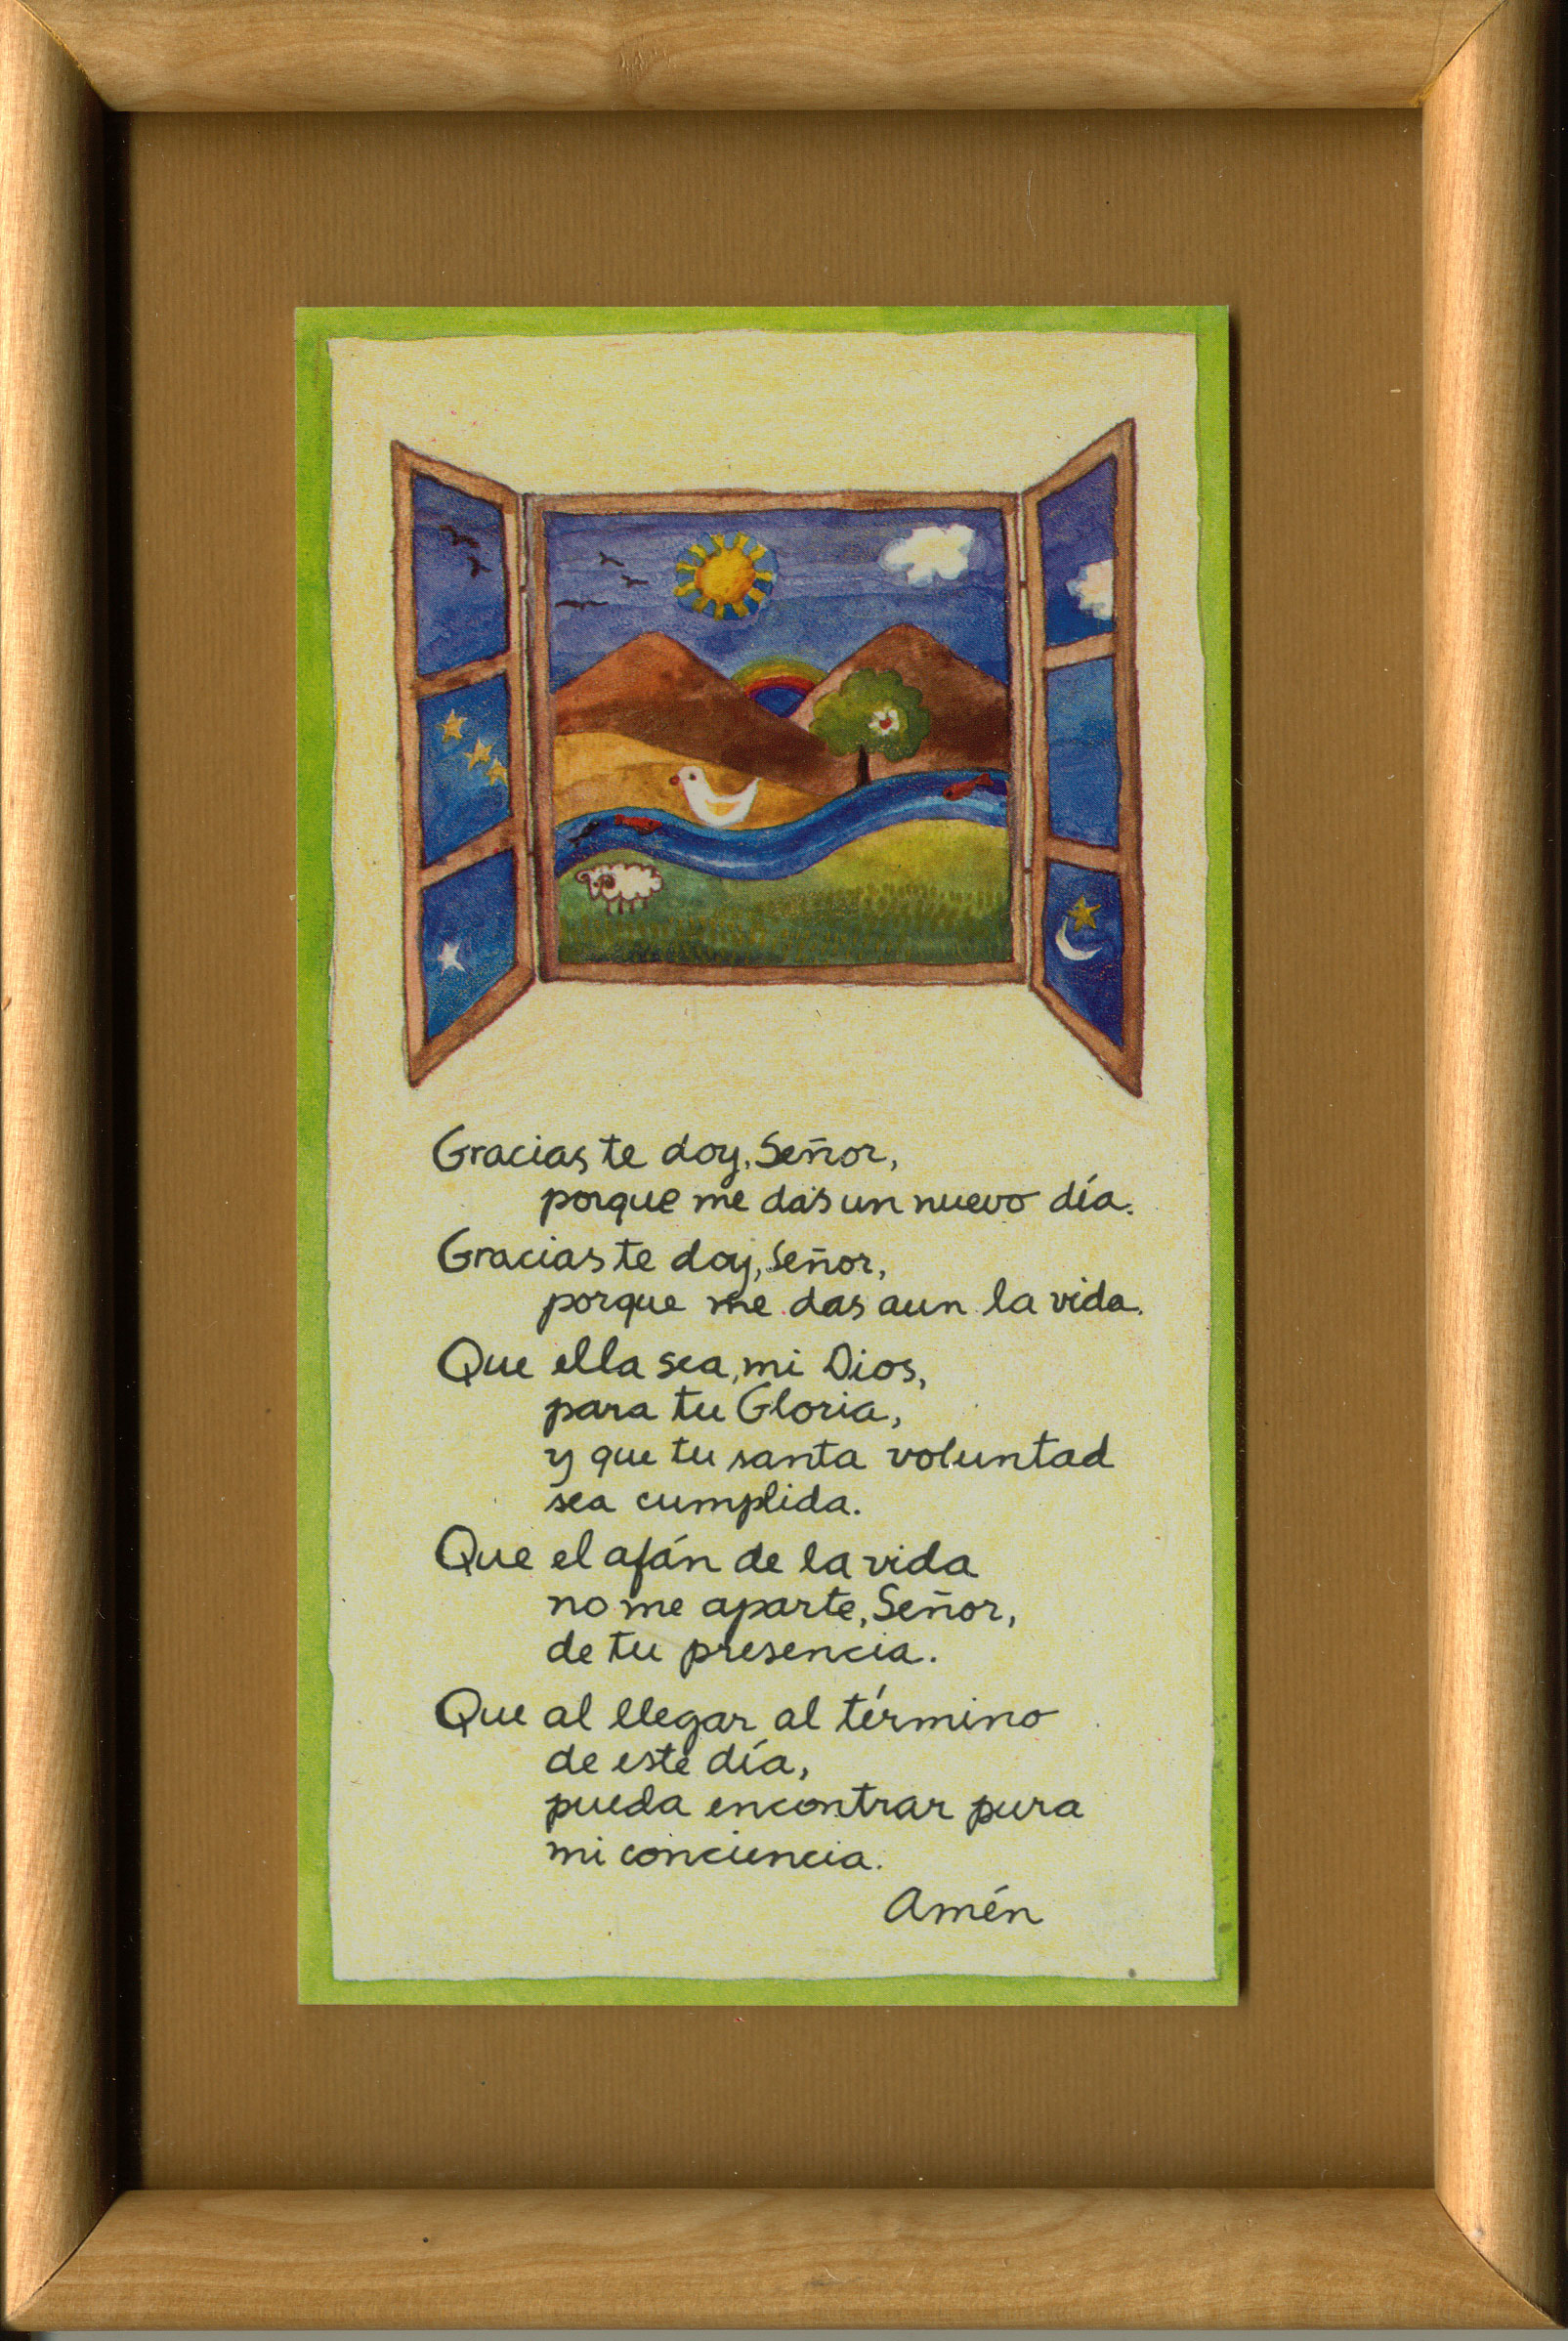 Gracias te doy, Señor,
porque me das un nuevo día.
Gracias te doy, Señor,
porque me das aun la vida.
Que ella sea, mi Dios,
para tu Gloria,
y que tu santa voluntad
sea cumplida.
Que el afán de la vida
no me aparte, Señor,
de tu presencia.
Que al llegar al término
de este día,
pueda encontrar pura
mi conciencia.
Amén